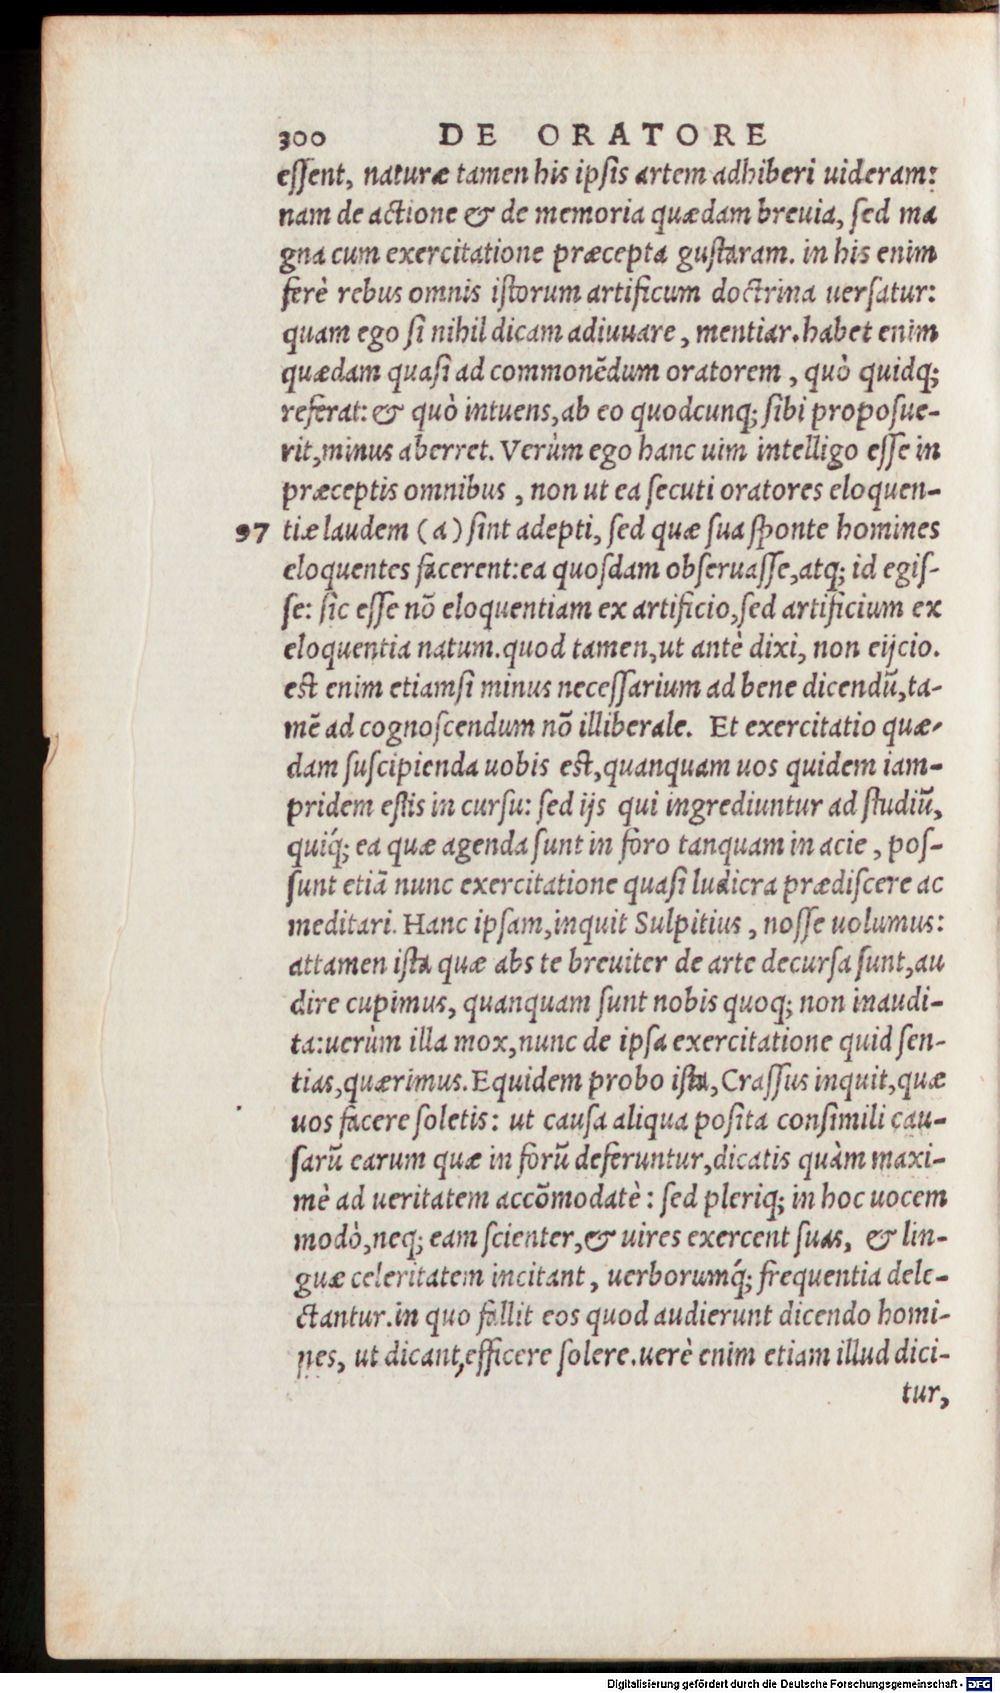 300 DE ORATORE
essent, naturæ tamen his ipsis artem adhiberi uideram:
nam de actione & de memoria quædam breuia, sed ma
gna cum exercitatione præcepta gustaram. in his enim
ferè rebus omnis istorum artificum doctrina uersatur:
quam ego si nihil dicam adiuuare, mentiar. habet enim
quædam quasi ad commonēdum oratorem, quò quidq;
referat: & quò intuens, ab eo quodcunq; sibi proposue-
rit, minus aberret. Verùm ego hanc uim intelligo esse in
præceptis omnibus, non ut ea secuti oratores eloquen-
97 tiæ laudem (a) sint adepti, sed quæ sua sponte homines
eloquentes facerent: ea quosdam obseruasse, atq; id egis-
se: sic esse nō eloquentiam ex artificio, sed artificium ex
eloquentia natum. quod tamen, ut antè dixi, non eijcio.
est enim etiamsi minus necessarium ad bene dicendū, ta-
mē ad cognoscendum nō illiberale. Et exercitatio quæ-
dam suscipienda uobis est, quanquam uos quidem iam-
pridem estis in cursu: sed ijs qui ingrediuntur ad studiū,
quiq́; ea quæ agenda sunt in foro tanquam in acie, pos-
sunt etiā nunc exercitatione quasi ludicra prædiscere ac
meditari. Hanc ipsam, inquit Sulpitius, nosse uolumus:
attamen ista quæ abs te breuiter de arte decursa sunt, au
dire cupimus, quanquam sunt nobis quoq; non inaudi-
ta: uerùm illa mox, nunc de ipsa exercitatione quid sen-
tias, quærimus. Equidem probo ista, Crassus inquit, quæ
uos facere soletis: ut causa aliqua posita consimili cau-
sarū earum quæ in forū deferuntur, dicatis quàm maxi-
mè ad ueritatem accōmodatè: sed pleriq; in hoc uocem
modò, neq; eam scienter, & uires exercent suas, & lin-
guæ celeritatem incitant, uerborumq́; frequentia dele-
ctantur. in quo fallit eos quod audierunt dicendo homi-
nes, ut dicant, efficere solere. uerè enim etiam illud dici-
tur,
Digitalisierung gefördert durch die Deutsche Forschungsgemeinschaft - DFG